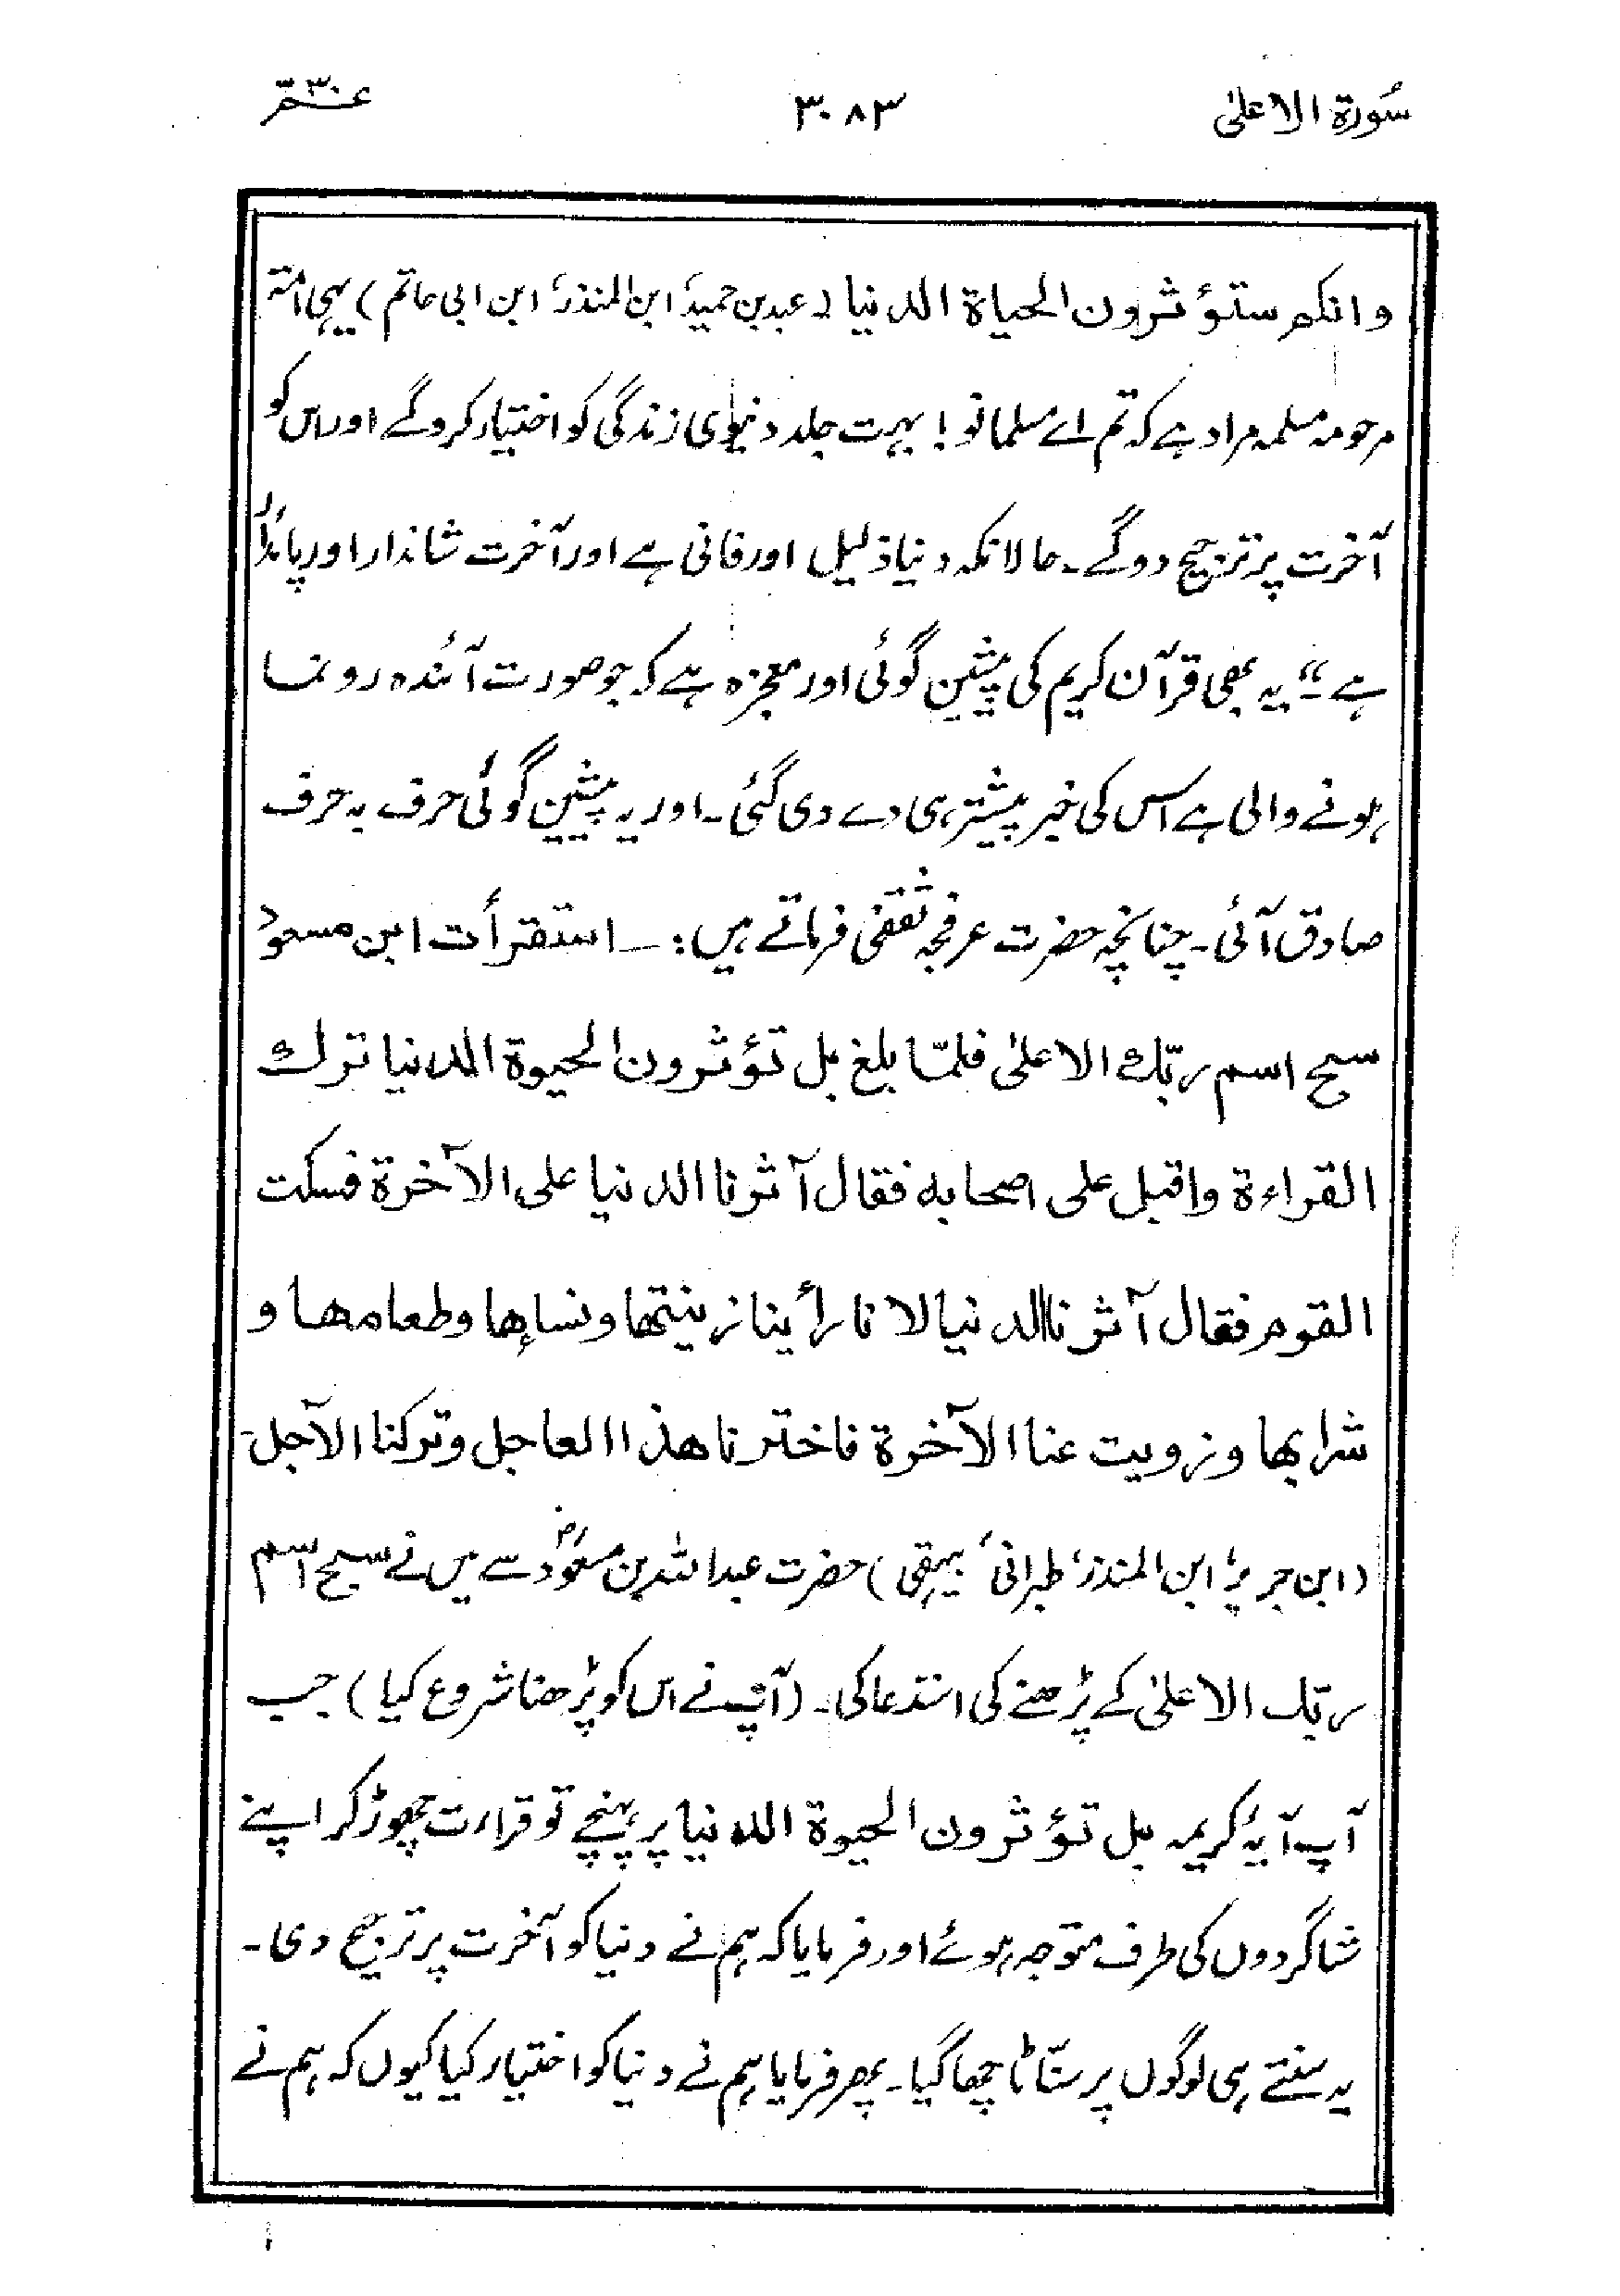 سُورۃ الاعلیٰ ۳۰۸۳ عم ۳۰
وانکم ستؤثرون الحیاۃ الدنیا (عبد بن حمید، ابن المنذر، ابن ابی حاتم) یہی امت
مرحومہ مسلمہ مراد ہے کہ تم اے مسلمانو! بہت جلد دنیاوی زندگی کو اختیار کروگے اور اس کو
آخرت پر ترجیح دوگے۔ حالانکہ دنیا ذلیل اور فانی ہے اور آخرت شاندار اور پائدار
ہے“۔ یہ بھی قرآن کریم کی پیشین گوئی اور معجزہ ہے کہ جو صورت آئندہ رونما
ہونے والی ہے اس کی خبر پیشتر ہی دے دی گئی۔ اور یہ پیشین گوئی حرف بہ حرف
صادق آئی۔ چنانچہ حضرت عرفجہ ثقفی فرماتے ہیں:۔ استقرأت ابن مسعود
سبح اسم ربّک الاعلیٰ فلمّا بلغ بل تؤثرون الحیوۃ الدنیا ترک
القراءۃ واقبل علی اصحابہ فقال آثرنا الدنیا علی الآخرۃ فسکت
القوم فقال آثرنا الدنیا لانا رأینا زینتھا ونساءھا وطعامھا و
شرابھا وزویت عنا الآخرۃ فاخترنا ھذا العاجل وترکنا الآجل۔
(ابن جریر، ابن المنذر، طبرانی، بیہقی) حضرت عبداللہ بن مسعودؓ سے میں نے سبح اسم
ربک الاعلیٰ کے پڑھنے کی استدعا کی۔ (آپ نے اس کو پڑھنا شروع کیا) جب
آپ آیۂ کریمہ بل تؤثرون الحیوۃ الدنیا پر پہنچے تو قراءت چھوڑ کر اپنے
شاگردوں کی طرف متوجہ ہوئے اور فرمایا کہ ہم نے دنیا کو آخرت پر ترجیح دی۔
یہ سنتے ہی لوگوں پر سنّاٹا چھا گیا۔ پھر فرمایا ہم نے دنیا کو اختیار کیا کیوں کہ ہم نے